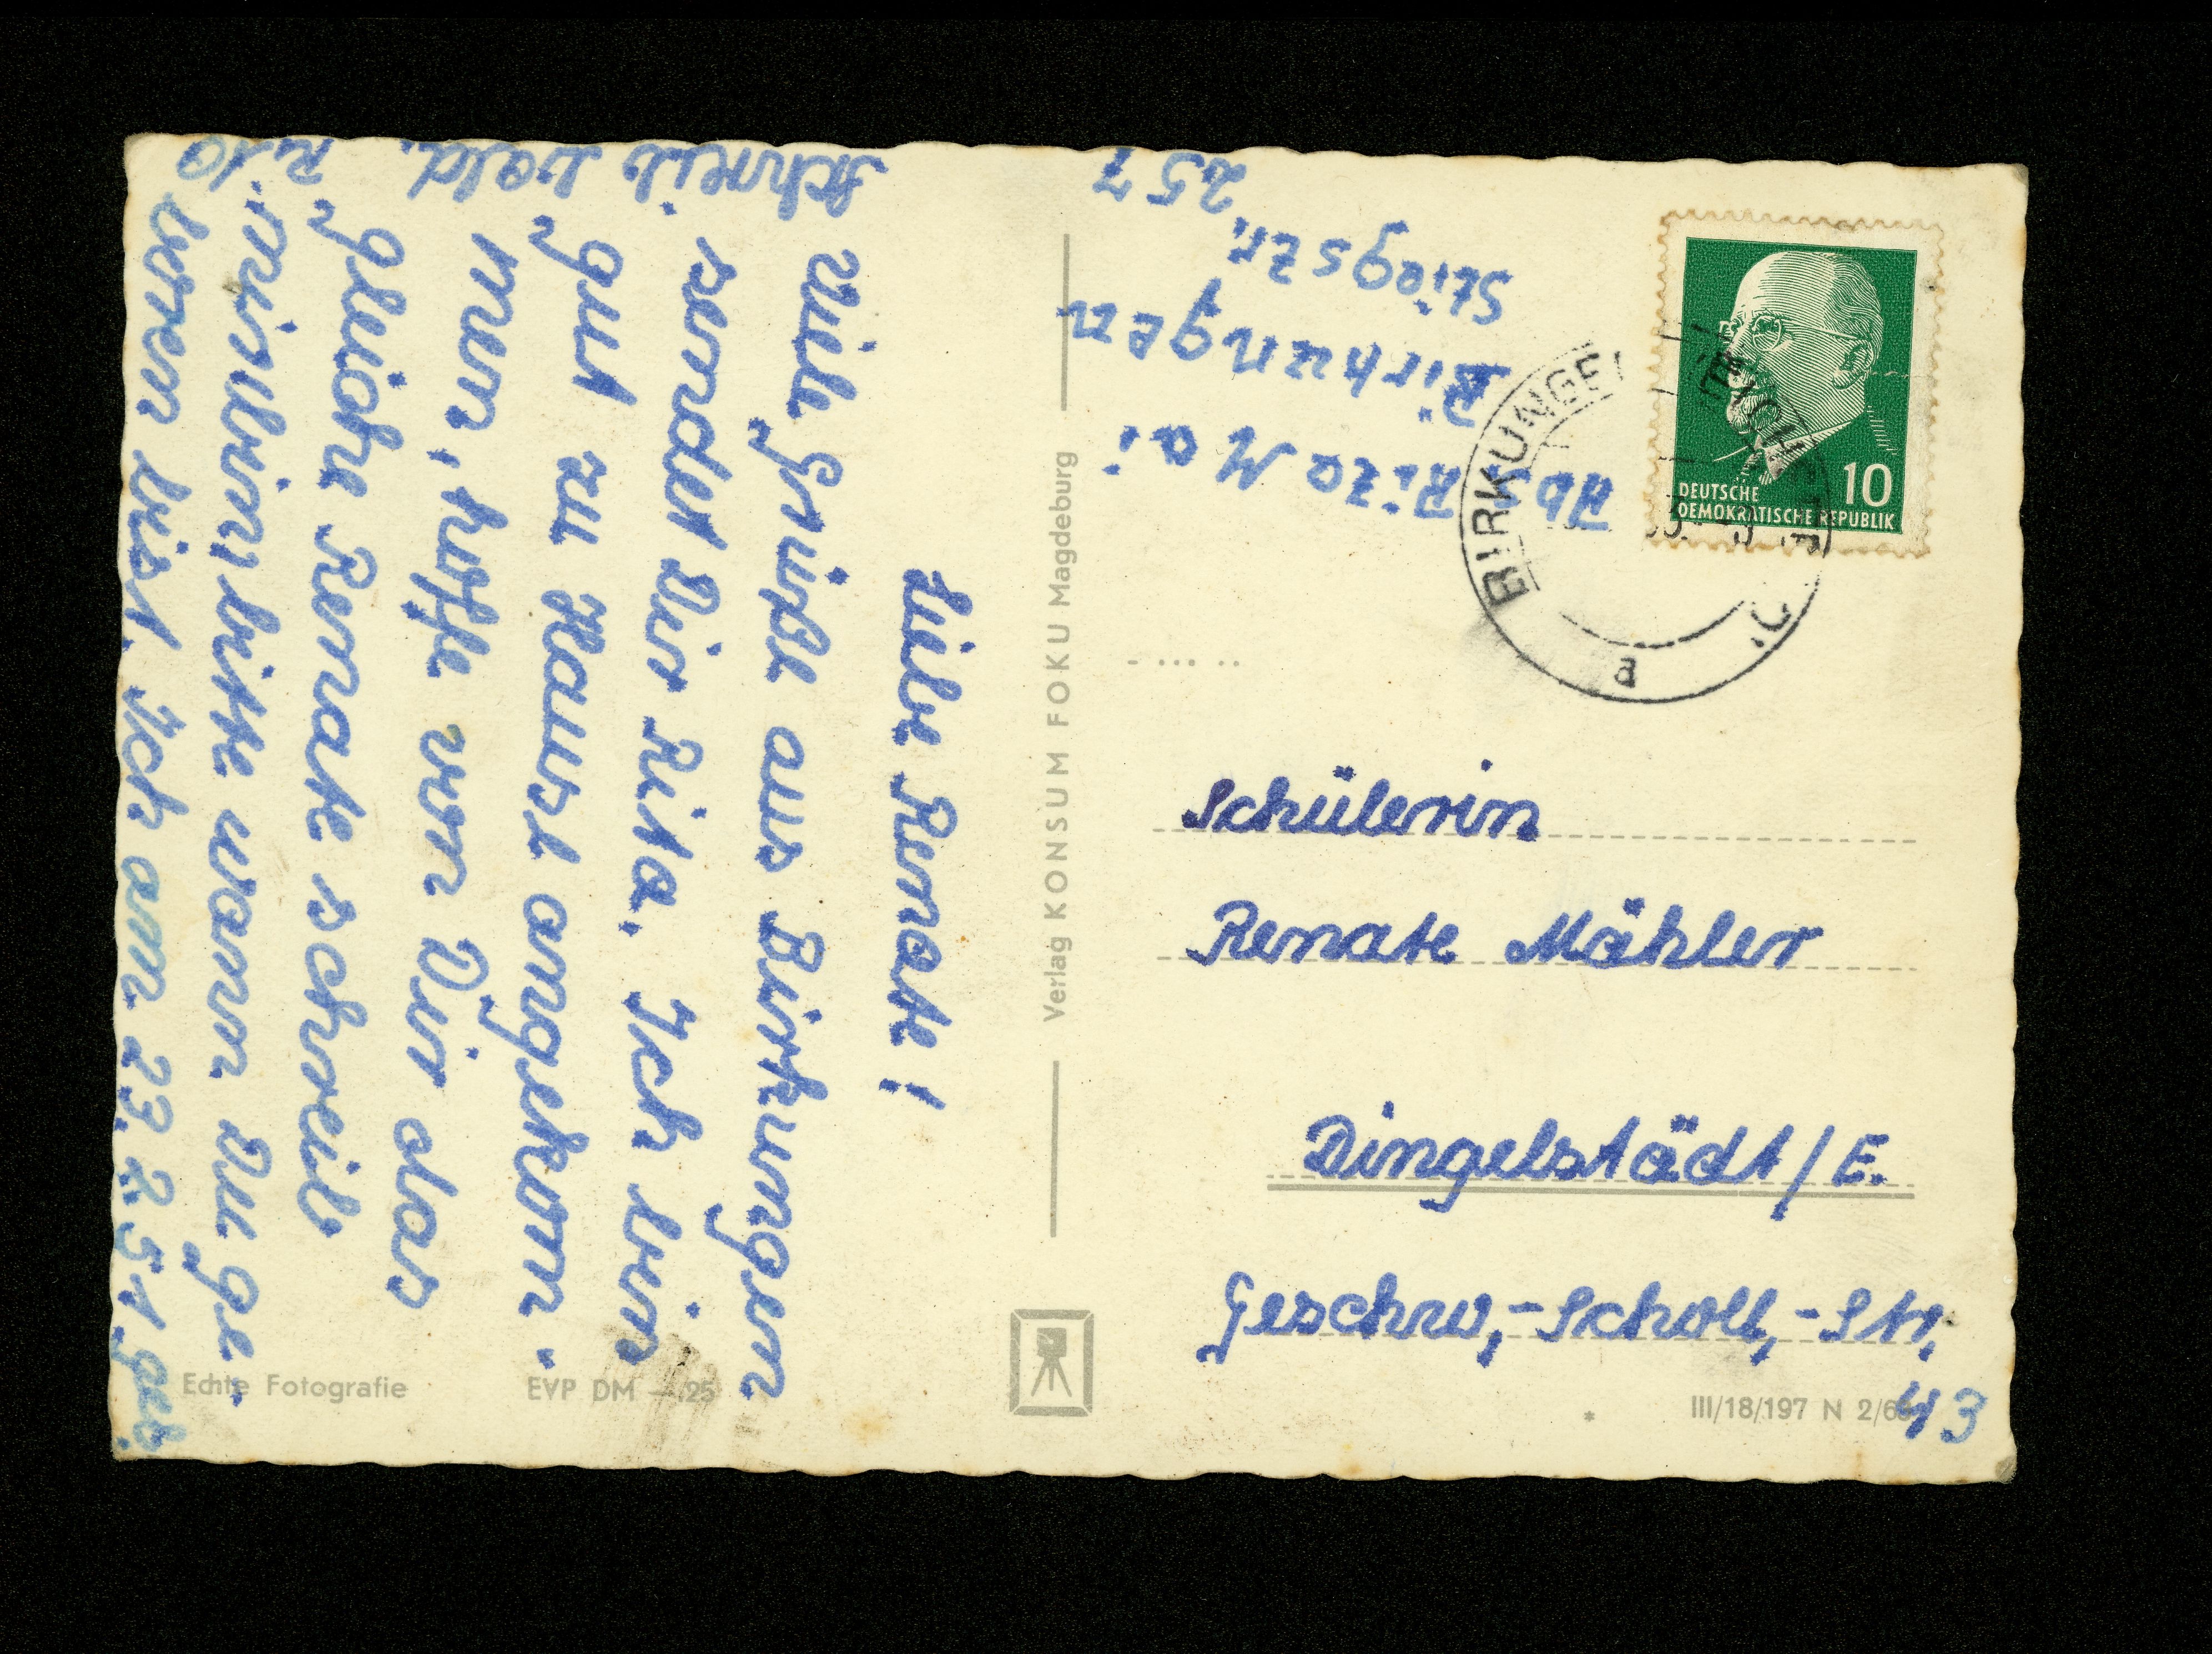 Liebe Renate!
Viele Grüße aus Birkungen
sendet Dir Rita. Ich bin
gut zu Hause angekom-
men, hoffe von Dir das
gleiche Renate schreib
mir bitte wann Du ge-
boren bist. Ich am 23.2.51 geb.
Schreib bald.
Rita
Abs. Rita Mai
Birkungen
Stiegstr.
257
Verlag KONSUM FOKU Magdeburg
DEUTSCHE
DEMOKRATISCHE REPUBLIK
10
BIRKUNGEN
a
Schülerin
Renate Mähler
Dingelstädt/E.
Geschw,-Scholl,-Str,
43
Echte Fotografie
EVP DM —,25
III/18/197 N 2/6